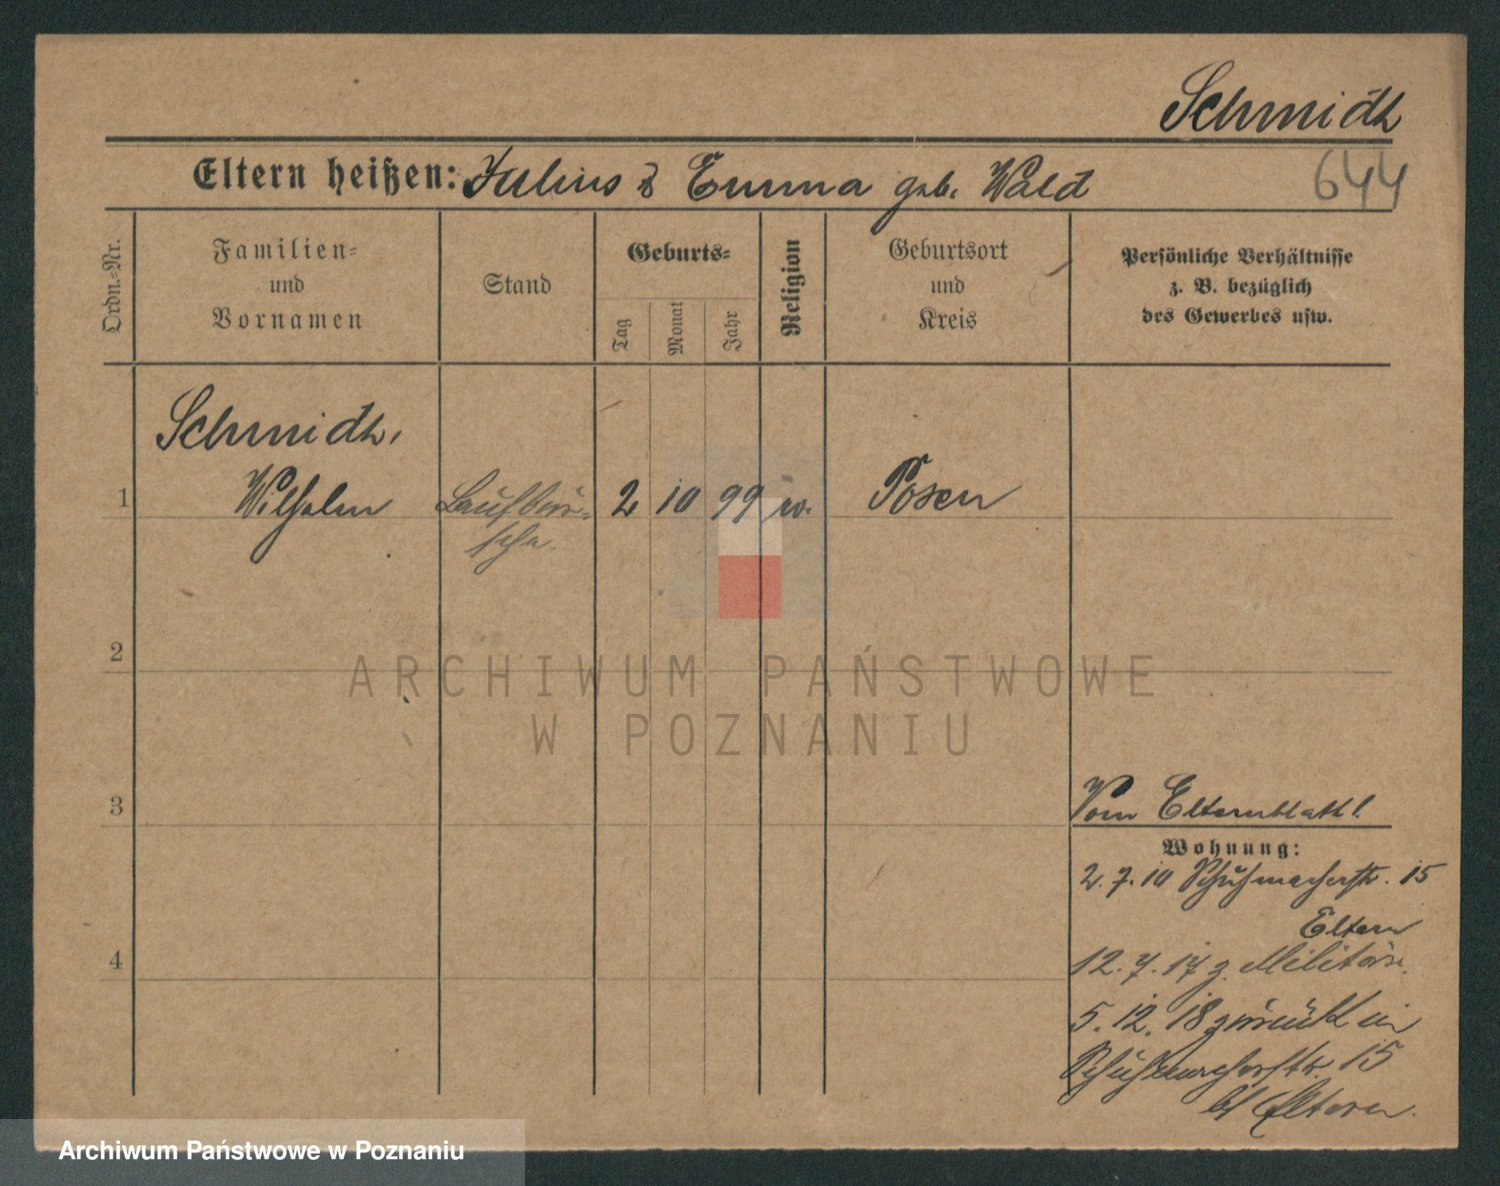 Schmidt
Eltern heißen: Julius & Emma geb. Wald
644
Ordn.-Nr.
Familien-
und
Vornamen
Stand
Geburts-
Tag
Monat
Jahr
Religion
Geburtsort
und
Kreis
Persönliche Verhältnisse
z. B. bezüglich
des Gewerbes usw.
Schmidt,
1 Wilhelm Laufbur- 2 10 99 Posen
sche.
2
ARCHIWUM PAŃSTWOWE
W POZNANIU
3
Vom Elternblatt!
Wohnung:
2.7.10 Schuhmacherstr. 15
Eltern
4
12.7.17 z. Militär.
5.12.18 zurück in
Schuhmacherstr. 15
Eltern.
Archiwum Państwowe w Poznaniu